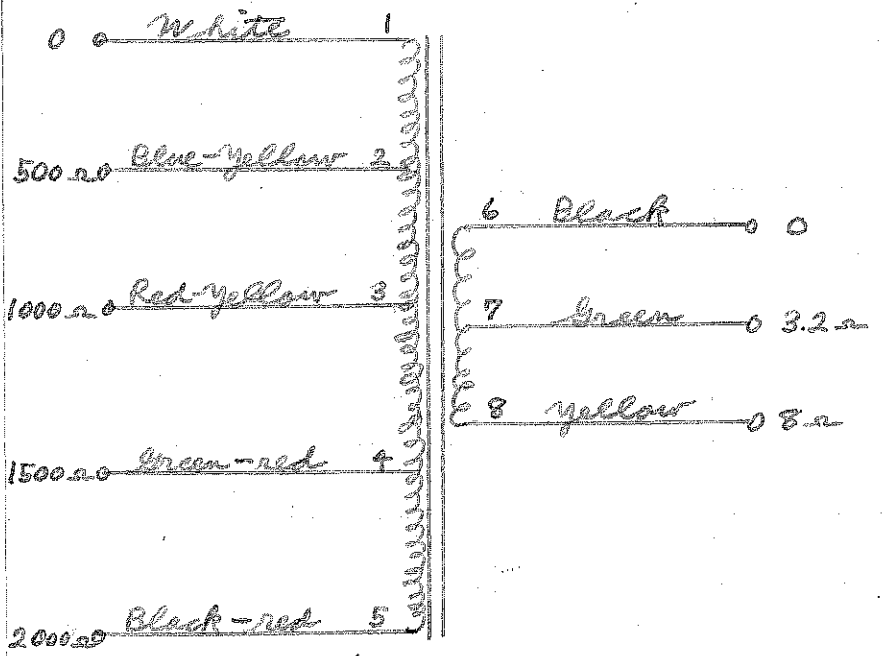 0 White 1
500 Ω Blue-Yellow 2
1000 Ω Red-Yellow 3
1500 Ω Green-red 4
2000 Ω Black-red 5
6 Black 0
7 Green 3.2 Ω
8 Yellow 8 Ω